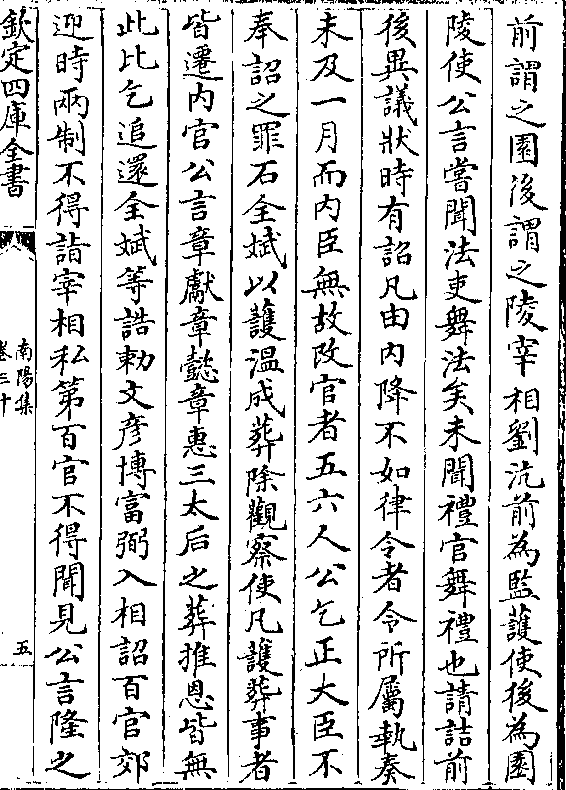 前謂之園後謂之陵宰相劉沆前為監護使後為園
陵使公言嘗聞法吏舞法矣未聞禮官舞禮也請詰前
後異議狀時有詔凡由内降不如律令者令所屬執奏
未及一月而内臣無故改官者五六人公乞正大臣不
奉詔之罪石全斌以護溫成葬除觀察使凡護葬事者
皆遷内官公言章獻章懿章惠三太后之葬推恩皆無
此比乞追還全斌等誥勅文彦博富弼入相詔百官郊
迎時兩制不得詣宰相私第百官不得間見公言隆之
欽定四庫全書
南陽集
卷三十
五